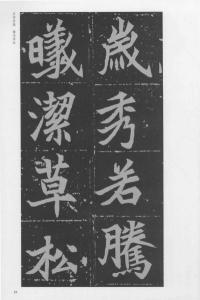 歲秀若騰
曦潔草松